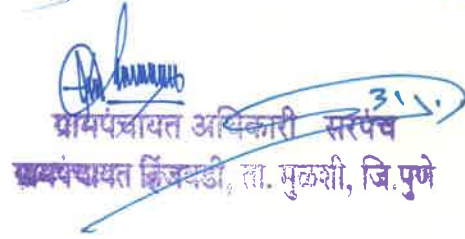 ग्रामपंचायत अधिकारी सरपंच
ग्रामपंचायत हिंजवडी, ता. मुळशी, जि.पुणे